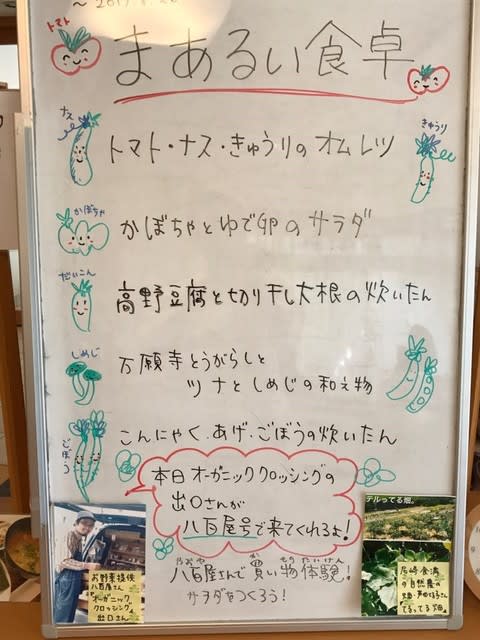 ～2017.8.20
トマト
まあるい食卓
ナス
きゅうり
トマト・ナス・きゅうりのオムレツ
かぼちゃ
かぼちゃとゆで卵のサラダ
だいこん
高野豆腐と切り干し大根の炊いたん
しめじ
万願寺とうがらしと
ツナとしめじの和え物
ごぼう
こんにゃく、あげ・ごぼうの炊いたん
本日オーガニッククロッシングの
出口さんが
八百屋号で来てくれるよ!
八百屋さんで買い物体験!
サラダをつくろう!
お野菜提供
八百屋さん
オーガニック
クロッシング
出口さん
テルってる畑。
尼崎食満
の自然農の
てるてる畑。